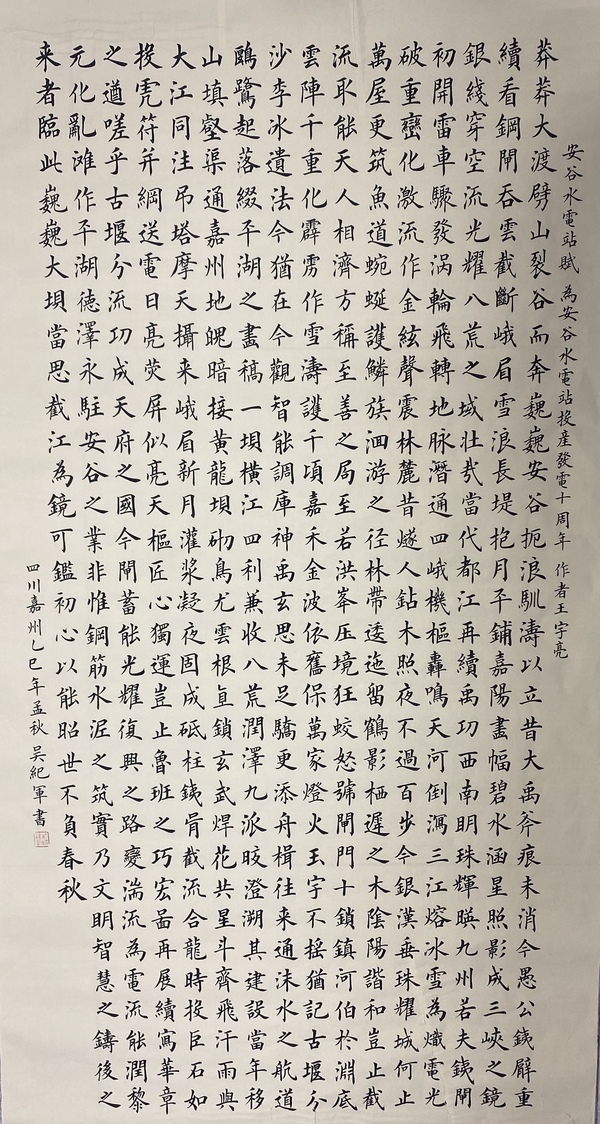 安谷水電站賦 為安谷水電站投產發電十周年 作者王宇亮
莽莽大渡劈山裂谷而奔巍巍安谷扼浪馴濤以立昔大禹斧痕未消今愚公鐵臂重
續看鋼閘吞雲截斷峨眉雪浪長堤抱月平鋪嘉陽畫幅碧水涵星照影成三峽之鏡
銀綫穿空流光耀八荒之域壯哉當代都江再續禹功西南明珠輝暎九州若夫鐵閘
初開雷車驟發涡輪飛轉地脉潛通四峨機樞轟鳴天河倒瀉三江熔冰雪為熾電光
破重巒化激流作金絃聲震林麓昔燧人鉆木照夜不過百步今銀漢垂珠耀城何止
萬屋更筑魚道蜿蜒護鱗族洄游之径林帶逶迤留鶴影栖遲之木陰陽諧和豈止截
流取能天人相濟方稱至善之局至若洪峯压境狂蛟怒號閘門十鎖鎮河伯於淵底
雲陣千重化霹雳作雪濤護千頃嘉禾金波依舊保萬家燈火玉宇不摇猶記古堰分
沙李冰遺法今猶在今觀智能調庫神禹玄思未足驕更添舟楫往来通沫水之航道
鷗鷺起落綴平湖之畫稿一垻橫江四利兼收八荒潤澤九派咬澄溯其建設當年移
山填壑渠通嘉州地魄暗接黃龍垻砌鳥尤雲根直鎖玄武焊花共星斗齊飛汗雨與
大江同注吊塔摩天攝来峨眉新月灌漿凝夜固成砥柱鐵骨截流合龍時投巨石如
投虎符并綱送電日亮荧屏似亮天樞匠心獨運豈止魯班之巧宏啚再展續寫華章
之遒嗟乎古堰分流功成天府之國今閘蓄能光耀復興之路變湍流為電流能潤黎
元化亂滩作平湖徳澤永駐安谷之業非惟鋼筋水泥之筑實乃文明智慧之鑄後之
来者臨此巍巍大垻當思截江為鏡可鑑初心以能昭世不負春秋
四川嘉州乙巳年孟秋 吴紀軍書